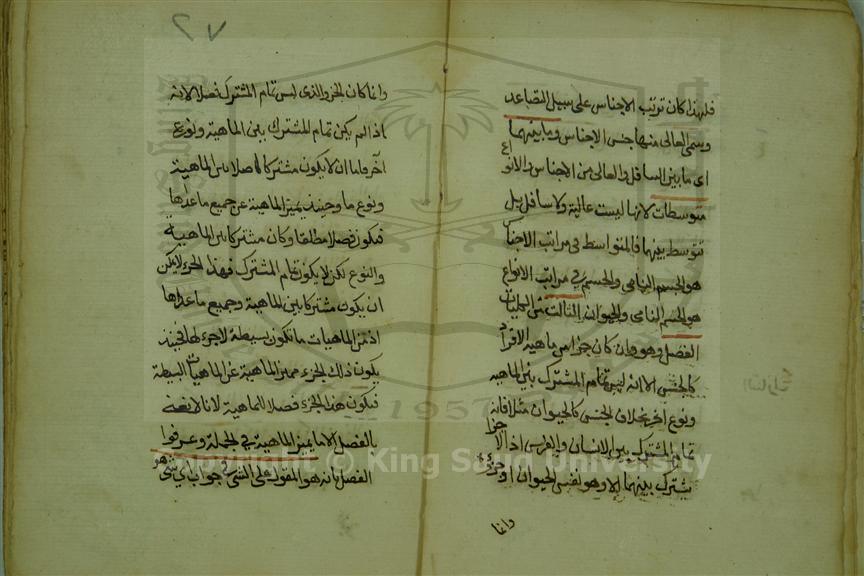 فلهذا كان ترتيب الاجناس على سبيل التصاعد
ويسمى العالى منها جنس الاجناس وما بينهما
اى ما بين السافل والعالى من الاجناس والانواع
متوسطات لانها ليست عالية ولا سافل بل
تتوسط بينهما فالمتواسط فى مراتب الاجناس
هو الجسم النامى والجسم فى مراتب الانواع
هو الجسم النامى والحيوان الثالث من الكليات
الفصل وهو وان كان جزا من ماهية الافراد
كالجنس الا انه ليس تمام المشترك بين الماهية
ونوع آخر بخلاف الجنس كالحيوان مثلا فانه
تمام المشترك بين الانسان والفرس اذ لا جزا
يشترك بينهما الا وهو نفس الحيوان او جزؤه
وانما
٢٧
وانما كان الجزو الذى ليس تمام المشترك فصلا لانه
اذا لم يكن تمام المشترك بين الماهية ونوع
آخر فاما ان لا يكون مشتركا اصلا بين الماهية
ونوع ما وحينئذ يميز الماهية عن جميع ما عداها
فيكون فصلا مطلقا وكان مشتركا بين الماهية
والنوع لكن لا يكون تمام المشترك فهذا الجزء لا يمكن
ان يكون مشتركا بين الماهية وجميع ما عداها
اذ من الماهيات ما تكون بسيطة لا جزء لها فحينئذ
يكون ذلك الجزء مميزا للماهية عن الماهيات البسيطة
فيكون هذا الجزء فصلا للماهية لانا لا نعنى
بالفصل الا ما يميز الماهية فى الجملة وعرفوا
الفصل بانه هو المقول على الشئ فى جواب اى شئ هو
Copyright © King Saud University
1957